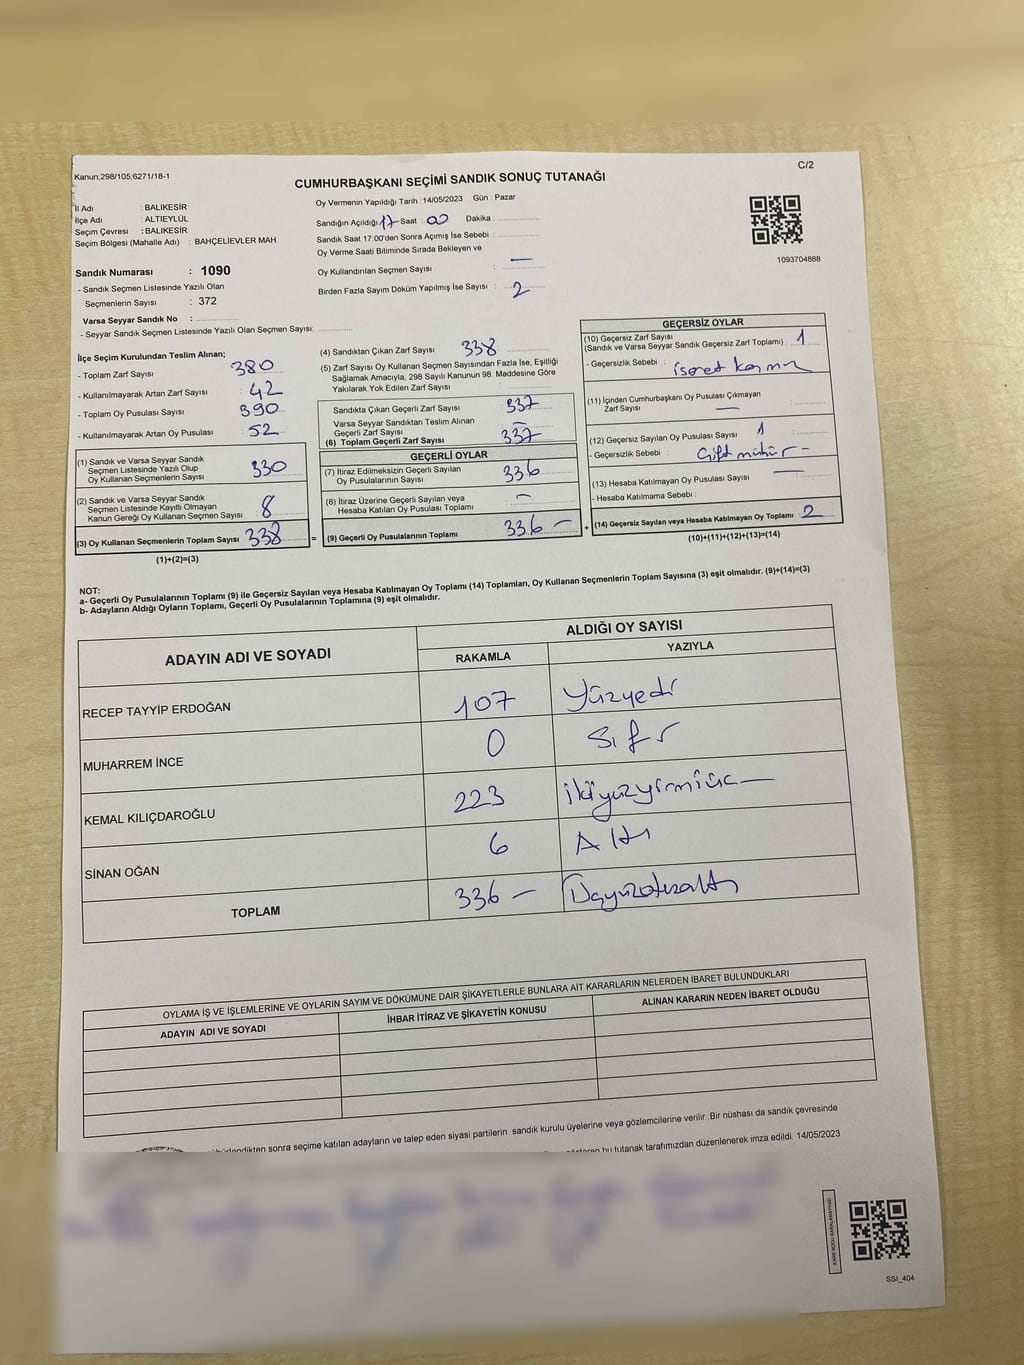 Kanun;298/105,6271/18-1
C/2
CUMHURBAŞKANI SEÇİMİ SANDIK SONUÇ TUTANAĞI
İl Adı : BALIKESİR
İlçe Adı : ALTIEYLÜL
Seçim Çevresi : BALIKESİR
Seçim Bölgesi (Mahalle Adı) : BAHÇELİEVLER MAH.
Sandık Numarası : 1090
- Sandık Seçmen Listesinde Yazılı Olan
Seçmenlerin Sayısı : 372
Varsa Seyyar Sandık No :
- Seyyar Sandık Seçmen Listesinde Yazılı Olan Seçmen Sayısı:
Oy Vermenin Yapıldığı Tarih : 14/05/2023 Gün : Pazar
Sandığın Açıldığı 17 Saat : 00 Dakika :
Sandık Saat 17:00'den Sonra Açımış İse Sebebi :
Oy Verme Saati Bitiminde Sırada Bekleyen ve
Oy Kullandırılan Seçmen Sayısı : —
Birden Fazla Sayım Döküm Yapılmış İse Sayısı : 2
1093704888
İlçe Seçim Kurulundan Teslim Alınan;
- Toplam Zarf Sayısı : 380
- Kullanılmayarak Artan Zarf Sayısı : 42
- Toplam Oy Pusulası Sayısı : 390
- Kullanılmayarak Artan Oy Pusulası : 52
(1) Sandık ve Varsa Seyyar Sandık
Seçmen Listesinde Yazılı Olup
Oy Kullanan Seçmenlerin Sayısı : 330
(2) Sandık ve Varsa Seyyar Sandık
Seçmen Listesinde Kayıtlı Olmayan
Kanun Gereği Oy Kullanan Seçmen Sayısı : 8
(3) Oy Kullanan Seçmenlerin Toplam Sayısı 338
(1)+(2)=(3)
(4) Sandıktan Çıkan Zarf Sayısı 338
(5) Zarf Sayısı Oy Kullanan Seçmen Sayısından Fazla İse, Eşitliği
Sağlamak Amacıyla; 298 Sayılı Kanunun 98. Maddesine Göre
Yakılarak Yok Edilen Zarf Sayısı :
Sandıkta Çıkan Geçerli Zarf Sayısı : 337
Varsa Seyyar Sandıktan Teslim Alınan
Geçerli Zarf Sayısı : —
(6) Toplam Geçerli Zarf Sayısı : 337
GEÇERLİ OYLAR
(7) İtiraz Edilmeksizin Geçerli Sayılan
Oy Pusulasının Sayısı : 336
(8) İtiraz Üzerine Geçerli Sayılan veya
Hesaba Katılan Oy Pusulası Toplamı : —
= (9) Geçerli Oy Pusulalarının Toplamı 336 — +
GEÇERSİZ OYLAR
(10) Geçersiz Zarf Sayısı
(Sandık ve Varsa Seyyar Sandık Geçersiz Zarf Toplamı) : 1
- Geçersizlik Sebebi : işaret koyma
(11) İçinden Cumhurbaşkanı Oy Pusulası Çıkmayan
Zarf Sayısı —
(12) Geçersiz Sayılan Oy Pusulası Sayısı : 1
- Geçersizlik Sebebi : Çift mühür -
(13) Hesaba Katılmayan Oy Pusulası Sayısı —
- Hesaba Katılmama Sebebi :
(14) Geçersiz Sayılan veya Hesaba Katılmayan Oy Toplamı : 2
(10)+(11)+(12)+(13)=(14)
NOT:
a- Geçerli Oy Pusulalarının Toplamı (9) ile Geçersiz Sayılan veya Hesaba Katılmayan Oy Toplamı (14) Toplamları, Oy Kullanan Seçmenlerin Toplam Sayısına (3) eşit olmalıdır. (9)+(14)=(3)
b- Adayların Aldığı Oyların Toplamı, Geçerli Oy Pusulalarının Toplamına (9) eşit olmalıdır.
ADAYIN ADI VE SOYADI
ALDIĞI OY SAYISI
RAKAMLA YAZIYLA
RECEP TAYYİP ERDOĞAN 107 Yüzyedi
MUHARREM İNCE 0 Sıfır
KEMAL KILIÇDAROĞLU 223 ikiyüzyirmiüç —
SİNAN OĞAN 6 Altı
TOPLAM 336 — Üçyüzotuzaltı
OYLAMA İŞ VE İŞLEMLERİNE VE OYLARIN SAYIM VE DÖKÜMÜNE DAİR ŞİKAYETLERLE BUNLARA AİT KARARLARIN NELERDEN İBARET BULUNDUKLARI
ADAYIN ADI VE SOYADI İHBAR İTİRAZ VE ŞİKAYETİN KONUSU ALINAN KARARIN NEDEN İBARET OLDUĞU
sonra seçime katılan adayların ve talep eden siyasi partilerin sandık kurulu üyelerine veya gözlemcilerine verilir .Bir nüshası da sandık çevresinde
bu tutanak tarafımızdan düzenlenerek imza edildi. 14/05/2023
KARE KODU KARALAMAYINIZ!
SSI_404